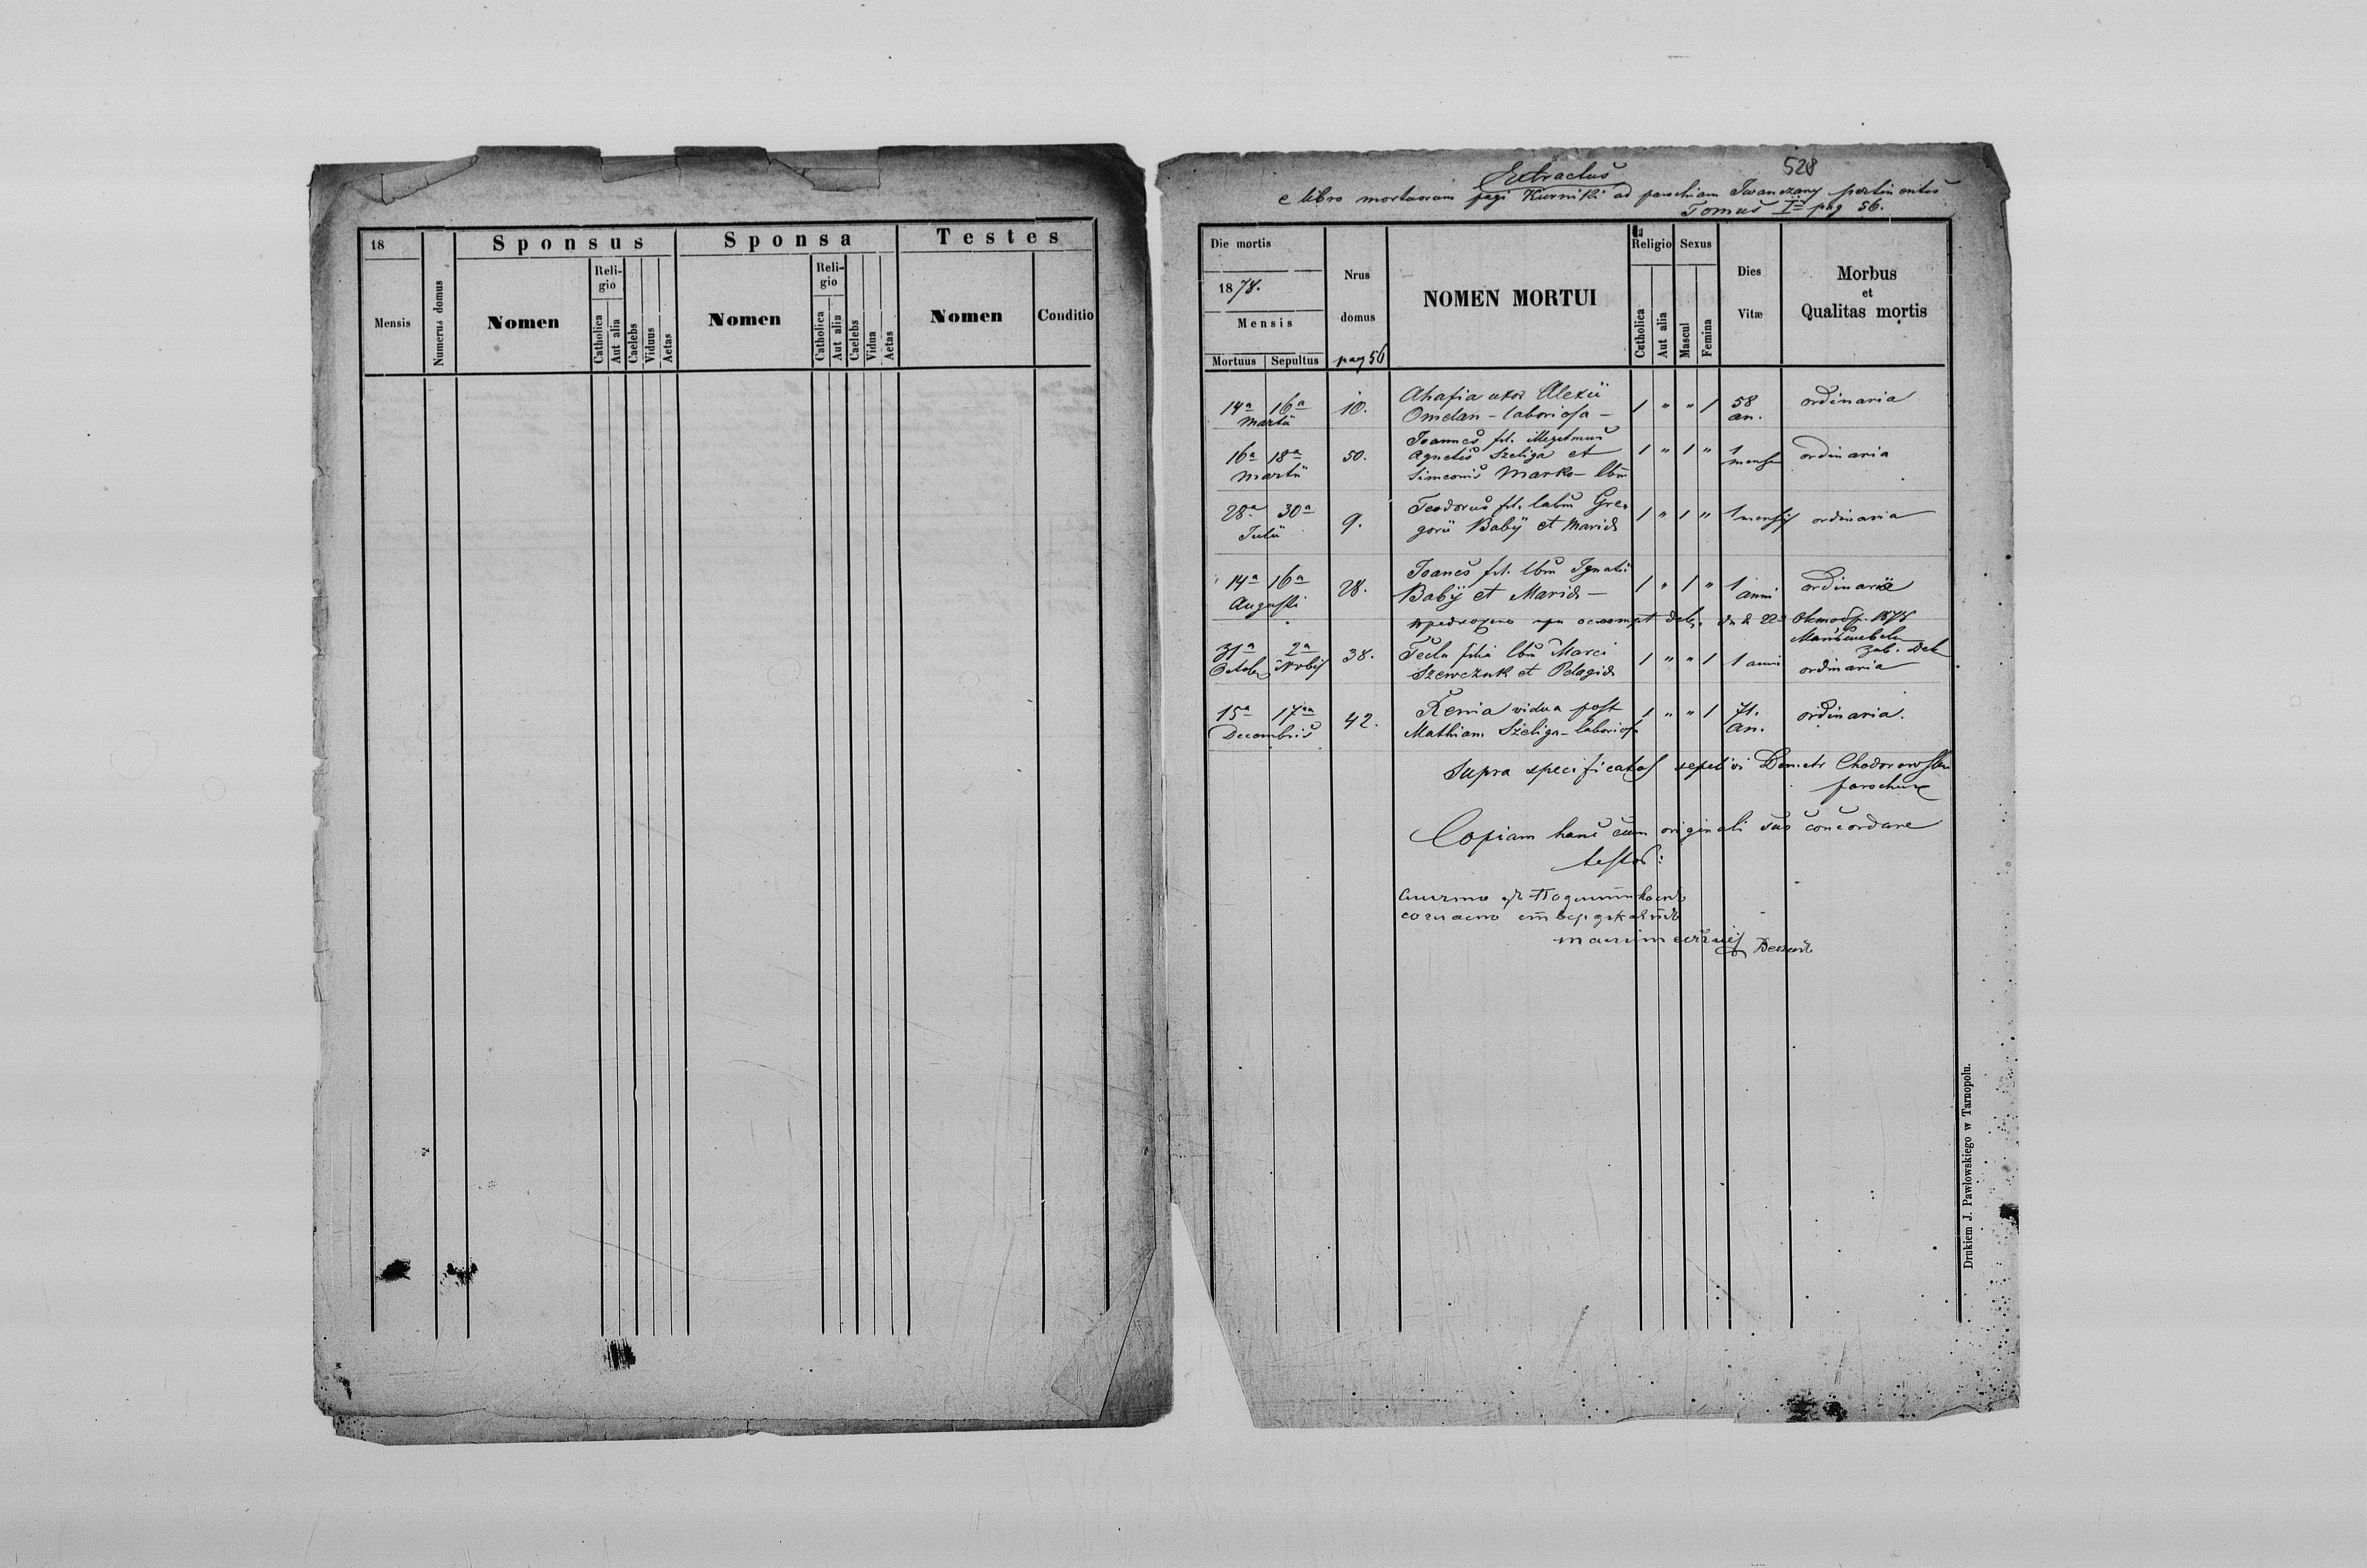 18
Sponsus
Sponsa
Testes
Mensis
Numerus domus
Nomen
Reli-
gio
Catholica
Aut alia
Caelebs
Viduus
Aetas
Nomen
Reli-
gio
Catholica
Aut alia
Caelebs
Vidua
Aetas
Nomen
Conditio
528
Extractus
e libro mortuorum pagi Kurniki ad parochiam Iwanczany pertinentis
Tomus I pag 56.
Die mortis
1878.
Mensis
Mortuus
Sepultus
Nrus
domus
pag 56
NOMEN MORTUI
Religio
Catholica
Aut alia
Sexus
Mascul
Femina
Dies
Vitæ
Morbus
et
Qualitas mortis
14a 16a 10. Ahafia uxor Alexii 1 " " 1 58 ordinaria
Martii Omelan - laboriosa - an.
Joannes fil. illegitmus
16a 18a 50. Agnetis Szeliga et 1 " 1 " 1 ordinaria
Martii Simeonis Marko - lbm mensis
28a 30a 9. Teodorus fil. labm Gre- 1 " 1 " 1 mensis ordinaria
Julii gorii Babij et Maria
14a 16a 28. Joanes fil. lbm Ignatii 1 " 1 " 1 ordinaria
Augusti Babij et Maria - anni
31a 2a 38. Tecla filia lbm Marci 1 " " 1 1 anni
Octob Novbis Szewczuk et Pelagia ordinaria
15a 17a 42. Xenia vidua post 1 " " 1 71. ordinaria.
Decembris Mathiam Szeliga - laboriosa an.
Supra specificatos sepelivi Demetr Chodorowski
parochus
Copiam hanc cum originali suo concordare
testor:
Drukiem J. Pawłowskiego w Tarnopolu.